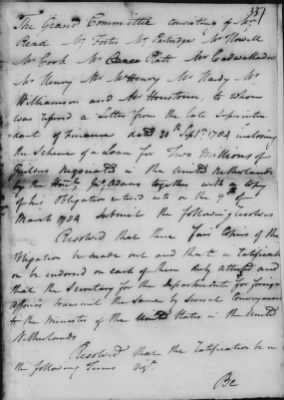 337
The Grand Committee consisting of Mr
Read Mr Foster Mr Partridge Mr Howell
Mr Cook Mr Platt Mr Cadwallader
Mr Henry Mr McHenry Mr Hardy Mr
Williamson and Mr Houstoun, to whom
was referred a Letter from the late Superinten
dant of Finance dated 30th Sept. 1784 inclosing
the Scheme of a Loan for Two Millions of
Guilders negotiated in the United Netherlands
by the Honble Jno Adams together with a Copy
of his Obligation entered into on the 9th of
March 1784 Submit the following resolves
Resolved that three Fair Copies of the
Obligation be made out and that a Ratification
be endorsed on each of them duly attested and
that the Secretary for the department for foreign
affairs transmit the same by several Conveyances
to the Minister of the United States in the United
Netherlands
Resolved that the Ratification be in
the following Terms vizt.
Be